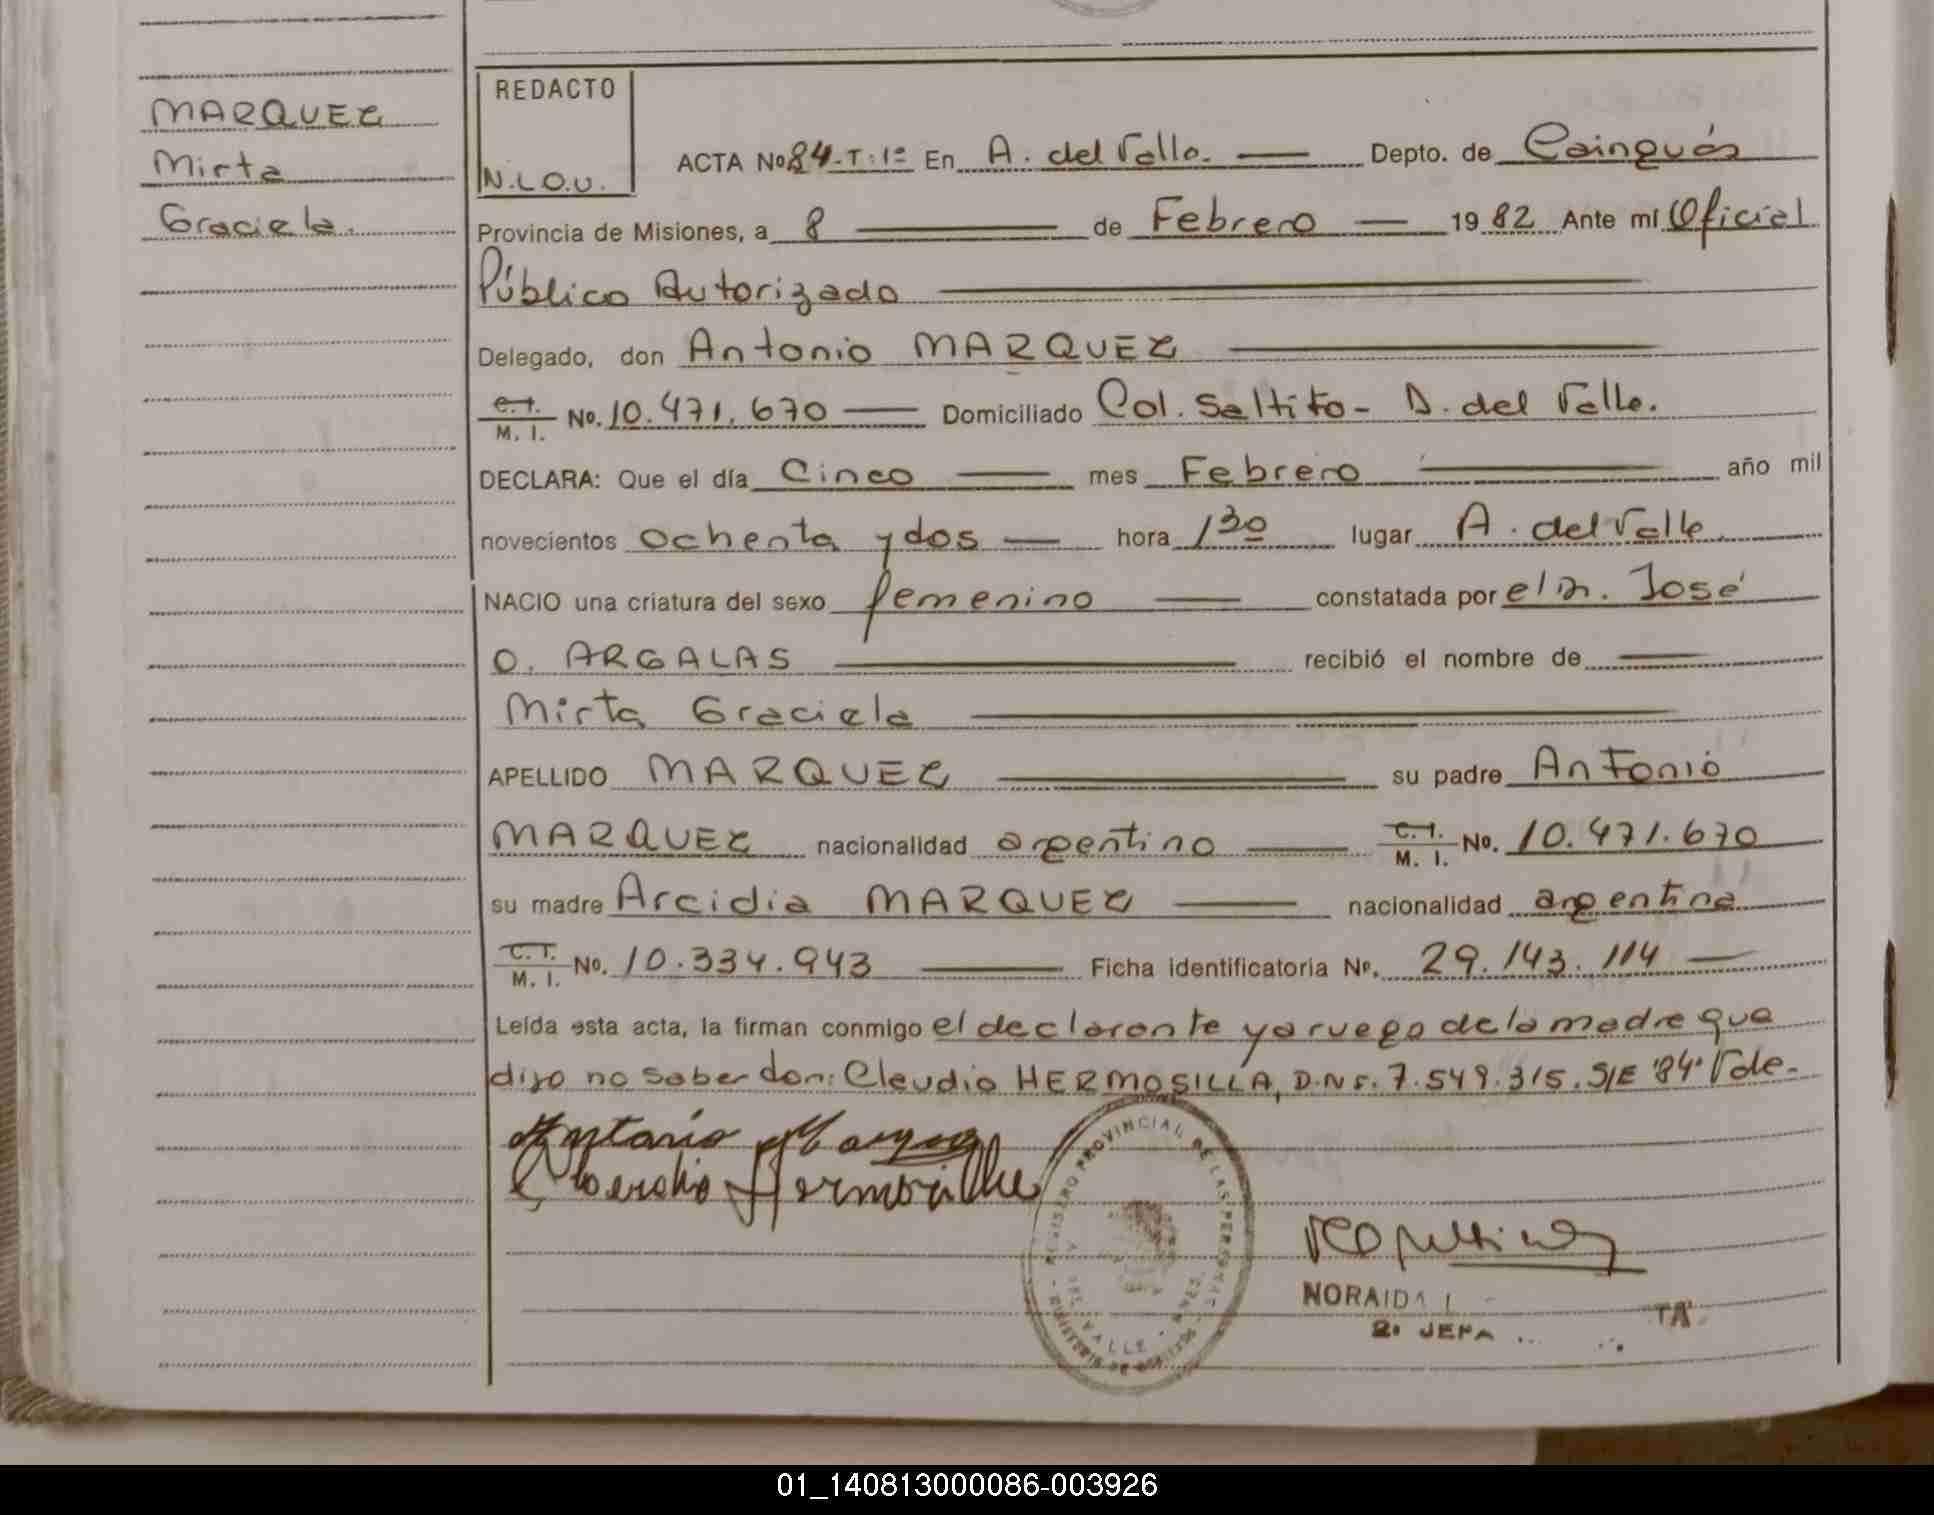 MARQUEZ
Mirta
Graciela.
REDACTO
N.L.O.U.
ACTA No 84-T:1º En A. del Valle. Depto. de Cainguás
Provincia de Misiones, a 8 de Febrero 1982 Ante mí Oficial
Público Autorizado
Delegado, don Antonio MARQUEZ
C.I. M. I. No. 10.471.670 Domiciliado Col. Saltito - A. del Valle.
DECLARA: Que el día Cinco mes Febrero año mil
novecientos ochenta y dos hora 1 30 lugar A. del Valle
NACIO una criatura del sexo femenino constatada por el Dr. José
O. ARGALAS recibió el nombre de
Mirta Graciela
APELLIDO MARQUEZ su padre Antonio
MARQUEZ nacionalidad argentino C.I. M. I. No. 10.471.670
su madre Arcidia MARQUEZ nacionalidad argentina
C.I. M. I. No. 10.334.943 Ficha identificatoria No. 29.143.114
Leída esta acta, la firman conmigo el declarante y a ruego de la madre que
dijo no saber don: Claudio HERMOSILLA, 7.549.315. S/E "84" Vale.
Antonio Marquez
Hermosilla
REGISTRO PROVINCIAL DE LAS PERSONAS
DEL VALLE
NORAIDA
JEFA
TA
01_140813000086-003926